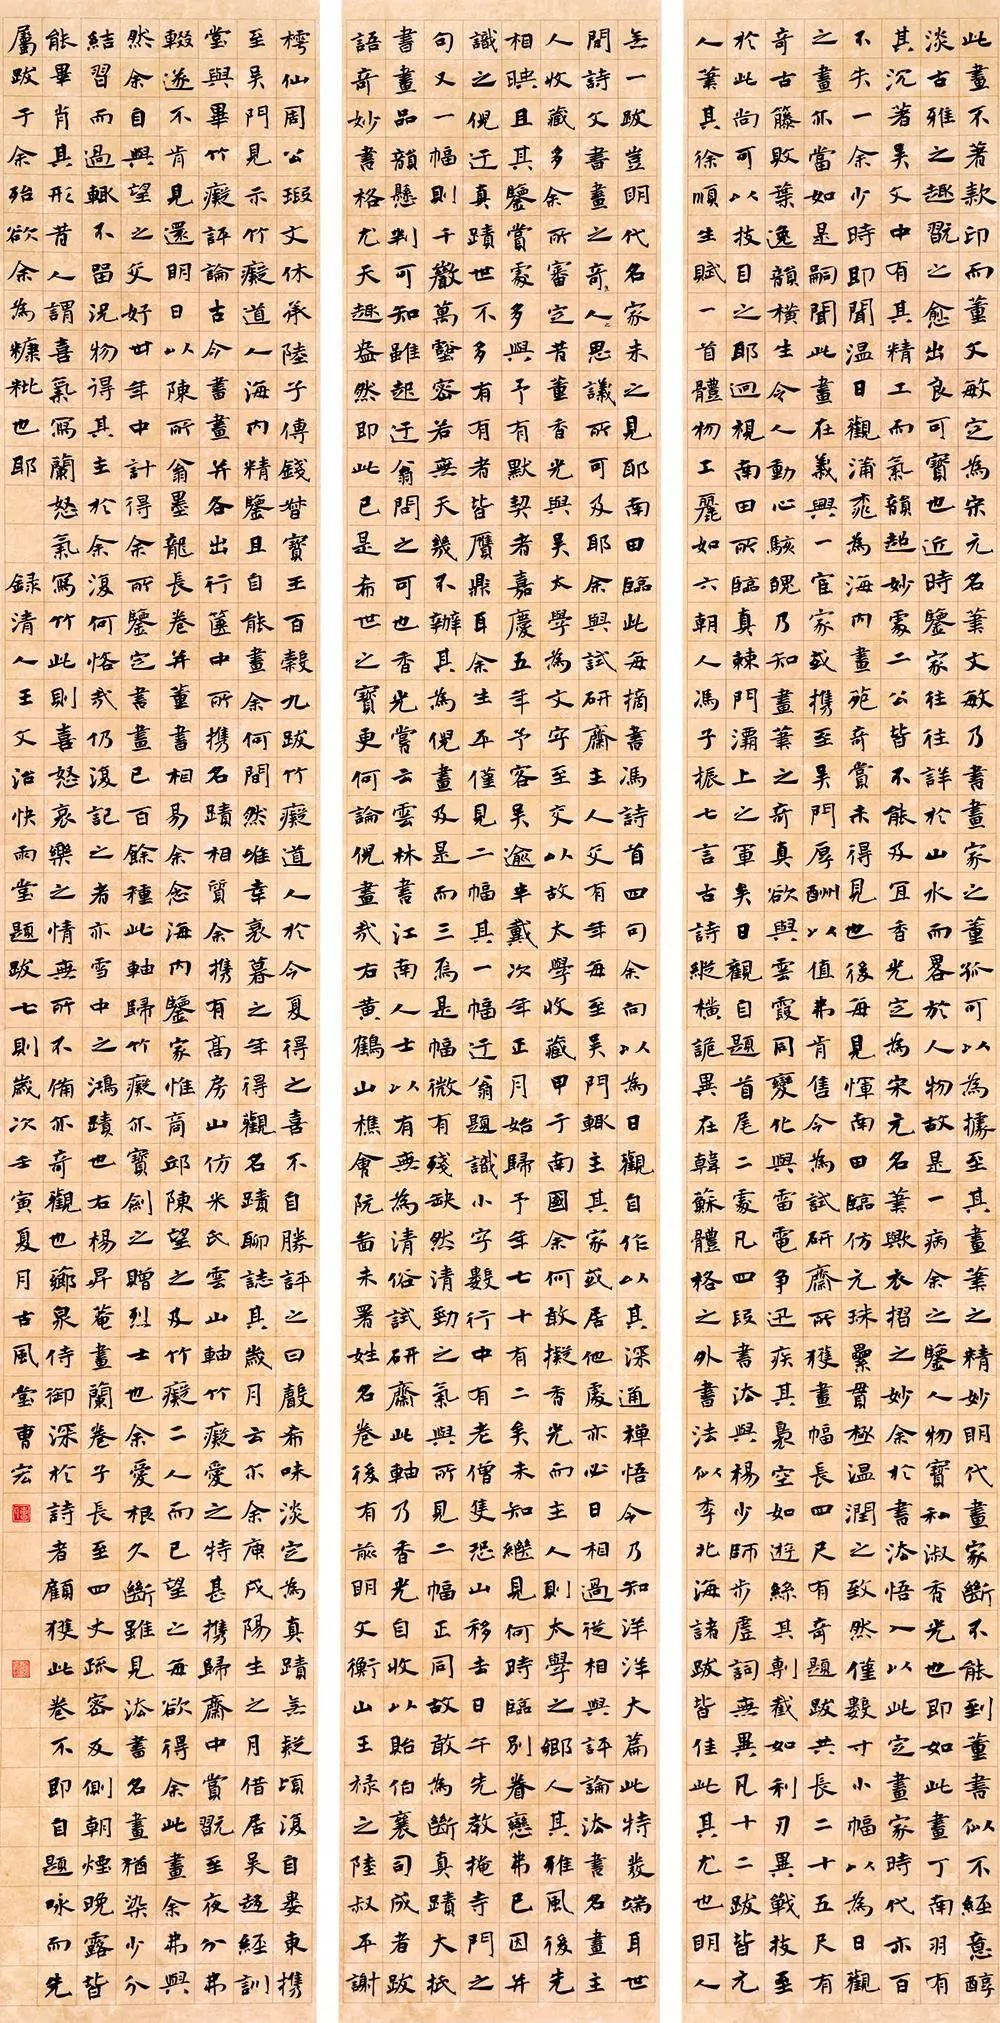 此畫不著款印而董文敏定為宋元名筆文敏乃書畫家之董狐可以為據至其畫筆之精妙明代畫家斷不能到董書似不經意醇
淡古雅之趣翫之愈出良可寶也近時鑒家往往詳於山水而畧於人物故是一病余之鑒人物寶和淑香光也即如此畫丁南羽有
其沉著吴文中有其精工而氣韻超妙處二公皆不能及宜香光定為宋元名筆歟衣摺之妙余於書法悟入以此定畫家時代亦百
不失一余少時即聞溫日觀蒲萄為海内畫苑奇賞未得見也後每見惲南田臨仿元珠纍貫極溫潤之致然僅數寸小幅以為日觀
之畫亦當如是嗣聞此畫在義興一官家或携至吴門厚酬以值弗肯售今為試研齋所獲畫幅長四尺有奇題跋共長二十五尺有
奇古籐敗葉逸韻橫生令人動心駭魄乃知畫筆之奇真欲與雲霞同變化與雷電爭迅疾其裊空如遊絲其剸截如利刃異戰技至
於此尚可以技目之耶迴視南田所臨真棘門灞上之軍矣日觀自題首尾二處凡四段書法與楊少師步虛詞無異凡十二跋皆元
人筆其徐順生賦一首體物工麗如六朝人馮子振七言古詩縱橫詭異在韓蘇體格之外書法似李北海諸跋皆佳此其尤也明人
無一跋豈明代名家未之見耶南田臨此每摘書馮詩首四句余向以為日觀自作以其深通禪悟今乃知洋洋大篇此特發端耳世
間詩文書畫之奇人思議所可及耶余與試研齋主人父有年每至吴門輒主其家或居他處亦必日相過從相與評論法書名畫主
人收藏多余所審定昔董香光與吴太學為文字至交以故太學收藏甲于南國余何敢擬香光而主人則太學之鄉人其雅風後先
相映且其鑒賞處多與予有默契者嘉慶五年予客吴逾半載次年正月始歸予年七十有二矣未知繼見何時臨別眷戀弗已因并
識之倪迂真蹟世不多有有者皆贋鼎耳余生平僅見二幅其一幅迂翁題識小字數行中有老僧隻恐山移去日午先教掩寺門之
句又一幅則千巖萬壑密若無天幾不辦其為倪畫及是而三焉是幅微有殘缺然清勁之氣與所見二幅正同故敢為斷真蹟大抵
書畫品韻懸判可知雖起迂翁問之可也香光嘗云雲林書江南人士以有無為清俗試研齋此軸乃香光自收以貽伯襄司成者跋
語奇妙書格尤天趣盎然即此已是希世之寶更何論倪畫哉右黃鶴山樵會阮圖未署姓名卷後有兪明文衡山王祿之陸叔平謝
樗仙周公瑕文休承陸子傳錢磬寶王百穀九跋竹癡道人於今夏得之喜不自勝評之曰聲希味淡定為真蹟無疑頃復自婁東携
至吴門見示竹癡道人海内精鑒且自能畫余何間然唯幸衰暮之年得觀名蹟聊誌其歲月云尓余庚戌陽生之月借居吴趨經訓
堂與畢竹癡評論古今書畫并各出行篋中所携名蹟相質余携有高房山仿米氏雲山軸竹癡愛之特甚携歸齋中賞翫至夜分弗
輟遂不肯見還明日以陳所翁墨龍長卷并董書相易余念海内鑒家惟商邱陳望之及竹癡二人而已望之每欲得余此畫余弗與
然余自與望之交好廿年中計得余所鑒定書畫已百餘種此軸歸竹癡亦寶劍之贈烈士也余愛根久斷雖見法書名畫猶染少分
結習而過輒不留況物得其主於余復何恪哉仍復記之者亦雪中之鴻蹟也右楊昇菴畫蘭卷子長至四丈疏密及側朝煙晚露皆
能畢肖其形昔人謂喜氣寫蘭怒氣寫竹此則喜怒哀樂之情無所不備亦奇觀也薌泉侍御深於詩者顧獲此卷不即自題咏而先
屬跋于余殆欲余為糠粃也耶 錄清人王文治快雨堂題跋七則歲次壬寅夏月古風堂曹宏